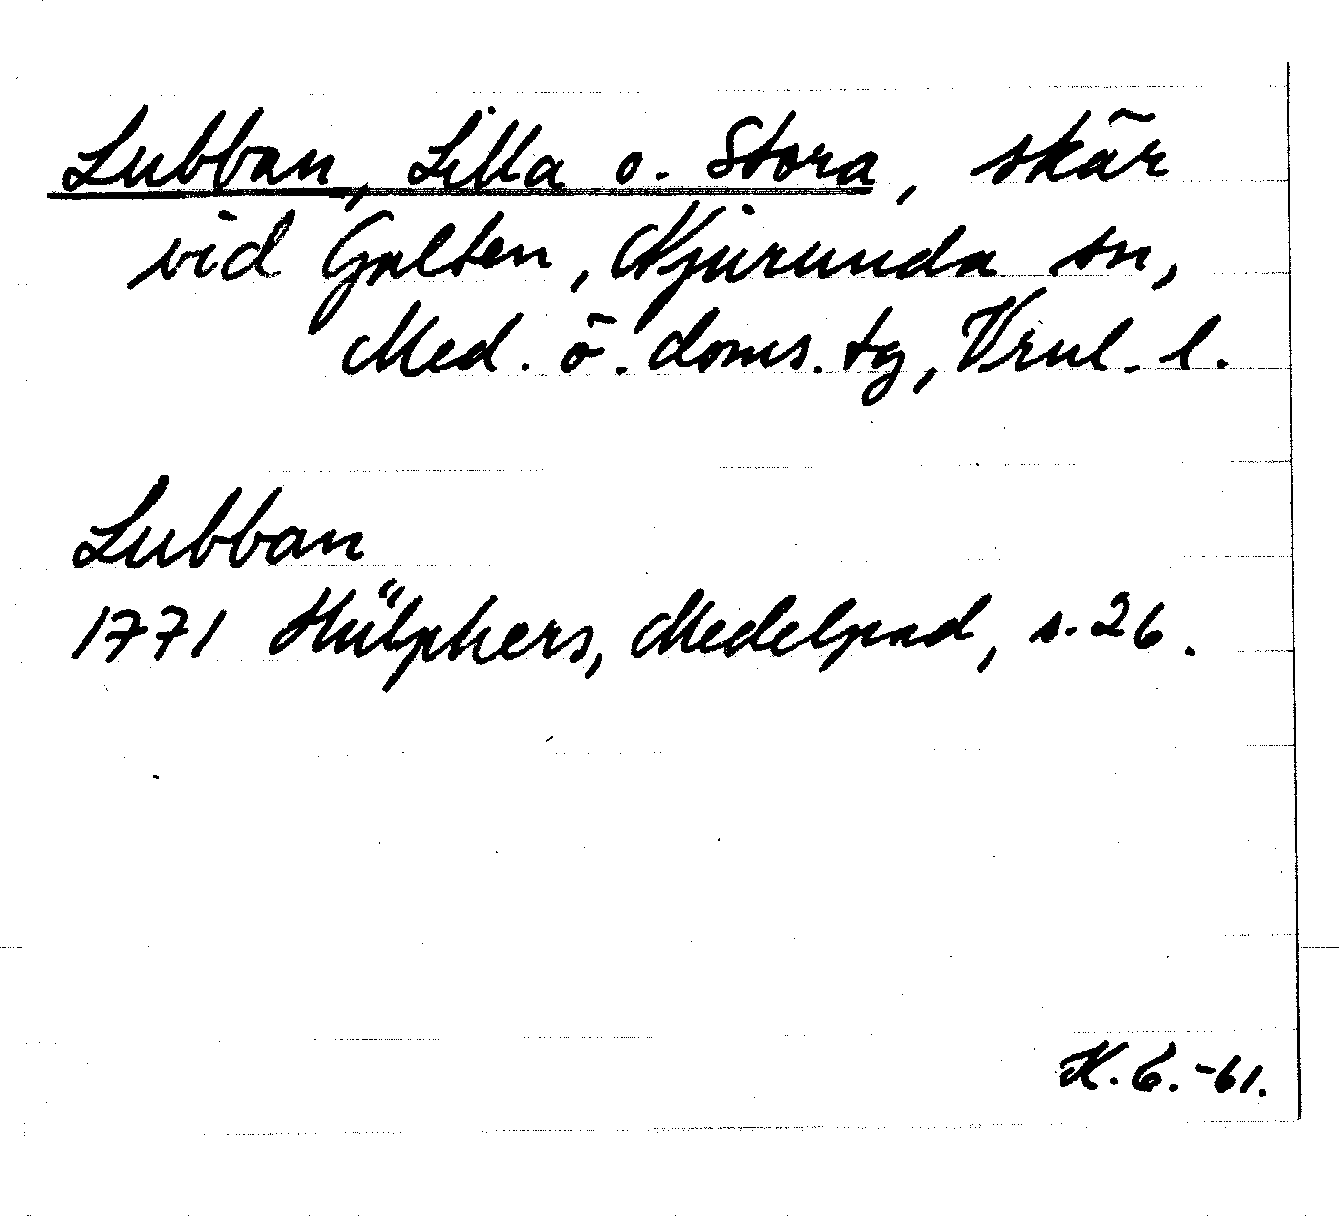 Lubban, Lilla o. Stora, skär
vid Galten, Njurunda sn,
Med. ö. doms. tg, Vrnl. l.
Lubban
1771 Hülphers, Medelpad, s. 26.
K. G. -61.